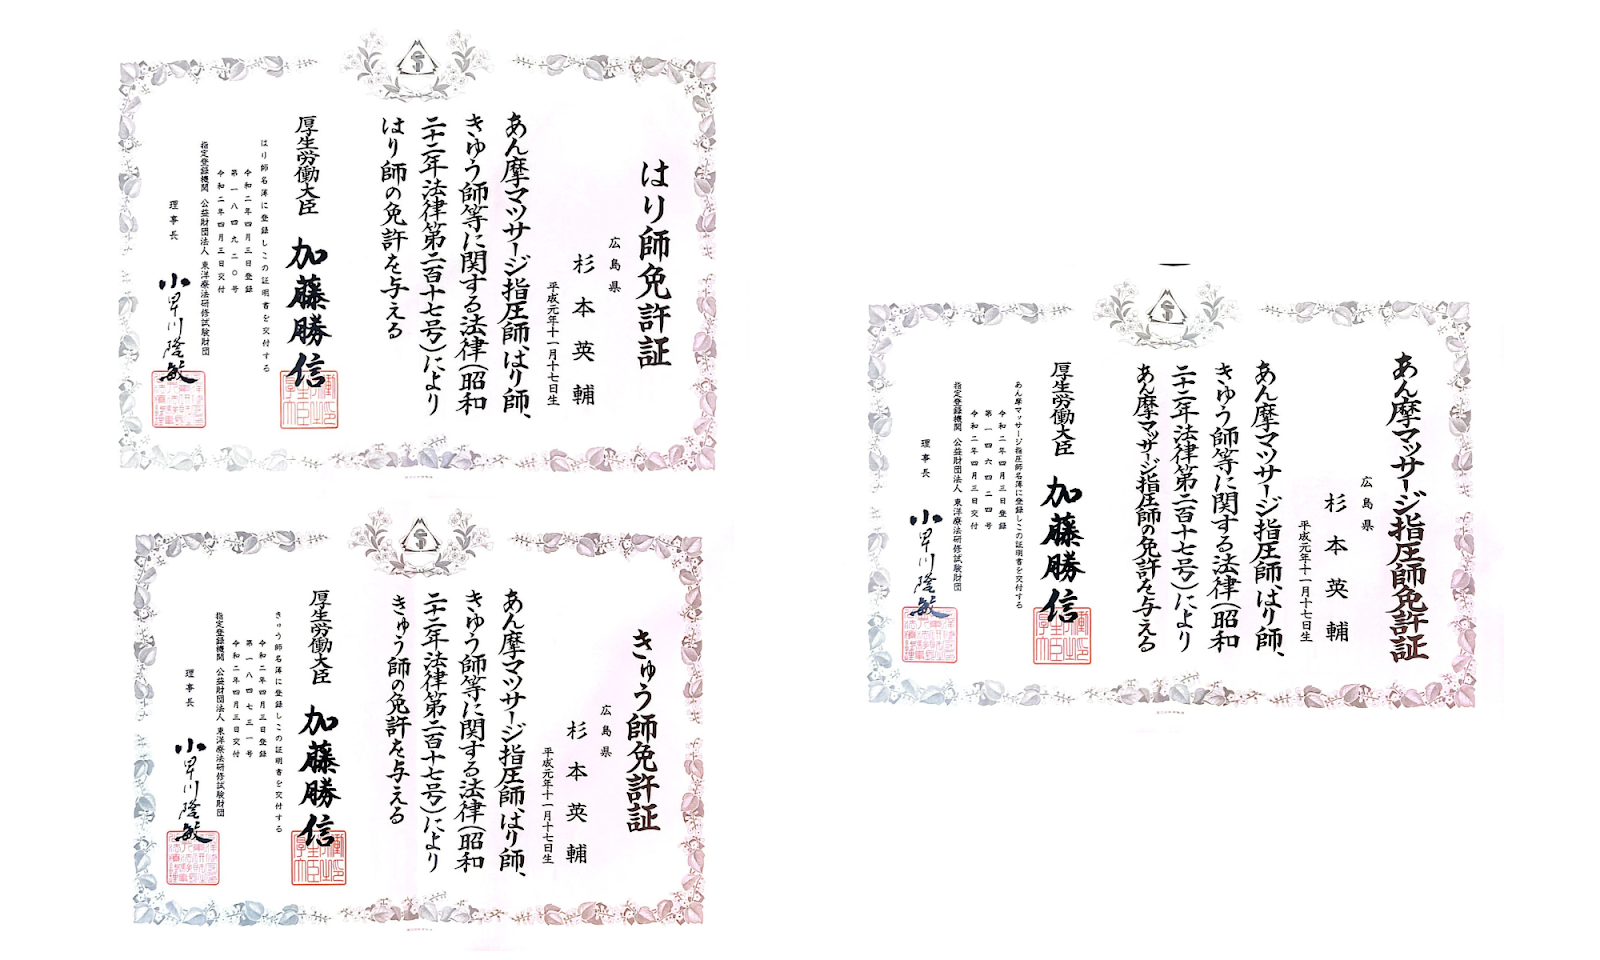 はり師免許証
広島県
杉本英輔
平成元年十一月十七日生
あん摩マッサージ指圧師、はり師、
きゅう師等に関する法律(昭和
二十二年法律第二百十七号)により
はり師の免許を与える
厚生労働大臣 加藤勝信
はり師名簿に登録しこの証明書を交付する
令和二年四月三日登録
第一八四九二〇号
令和二年四月三日交付
指定登録機関 公益財団法人 東洋療法研修試験財団
理事長 小早川隆敏
きゅう師免許証
広島県
杉本英輔
平成元年十一月十七日生
あん摩マッサージ指圧師、はり師、
きゅう師等に関する法律(昭和
二十二年法律第二百十七号)により
きゅう師の免許を与える
厚生労働大臣 加藤勝信
きゅう師名簿に登録しこの証明書を交付する
令和二年四月三日登録
第一八四七三一号
令和二年四月三日交付
指定登録機関 公益財団法人 東洋療法研修試験財団
理事長 小早川隆敏
あん摩マッサージ指圧師免許証
広島県
杉本英輔
平成元年十一月十七日生
あん摩マッサージ指圧師、はり師、
きゅう師等に関する法律(昭和
二十二年法律第二百十七号)により
あん摩マッサージ指圧師の免許を与える
厚生労働大臣 加藤勝信
あん摩マッサージ指圧師名簿に登録しこの証明書を交付する
令和二年四月三日登録
第一四六四二四号
令和二年四月三日交付
指定登録機関 公益財団法人 東洋療法研修試験財団
理事長 小早川隆敏